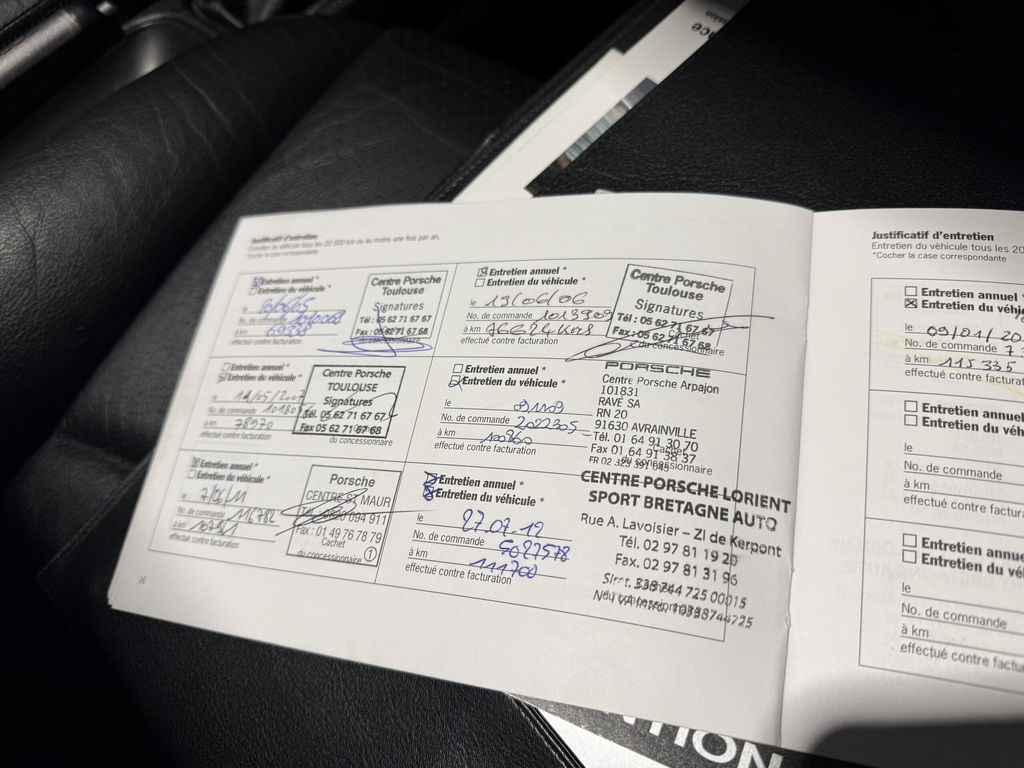 Justificatif d'entretien
Entretien du véhicule tous les 20 000 km ou au moins une fois par an.
*Cocher la case correspondante
Entretien annuel *
Entretien du véhicule *
le
No. de commande
à km 69338
effectué contre facturation
Centre Porsche
Toulouse
Signatures
Tél : 05 62 71 67 67
Fax : 05 62 71 67 68
Entretien annuel *
Entretien du véhicule *
le 19/06/06
No. de commande 1013909
à km 76624 Kms
effectué contre facturation
Centre Porsche
Toulouse
Signatures
Tél : 05 62 71 67 67
Fax : 05 62 71 67 68
Cachet
du concessionnaire
Entretien annuel *
Entretien du véhicule *
le 14/05/2007
No. de commande
à km 78970
effectué contre facturation
Centre Porsche
TOULOUSE
Signatures
Tél. 05 62 71 67 67
Fax 05 62 71 67 68
du concessionnaire
Entretien annuel *
Entretien du véhicule *
le
No. de commande 2022305
à km
effectué contre facturation
PORSCHE
Centre Porsche Arpajon
101831
RAVÉ SA
RN 20
91630 AVRAINVILLE
Tél. 01 64 91 30 70
Fax 01 64 91 38 37
Cachet
du concessionnaire
Entretien annuel *
Entretien du véhicule *
le 7/06/11
No. de commande 116782
à km
effectué contre facturation
Porsche
CENTRE ST MAUR
Fax : 01 49 76 78 79
Cachet
du concessionnaire 1
Entretien annuel *
Entretien du véhicule *
le 27.07.12
No. de commande
à km 111700
effectué contre facturation
CENTRE PORSCHE LORIENT
SPORT BRETAGNE AUTO
Rue A. Lavoisier - ZI de Kerpont
Tél. 02 97 81 19 20
Fax. 02 97 81 31 96
du concessionnaire
16
Justificatif d'entretien
Entretien du véhicule tous les 20
*Cocher la case correspondante
Entretien annuel
Entretien du véhic
le 09/01/20
No. de commande 7
à km 115 335
effectué contre facturat
Entretien annuel
Entretien du véh
le
No. de commande
à km
effectué contre factura
Entretien annue
Entretien du vé
le
No. de commande
à km
effectué contre factu